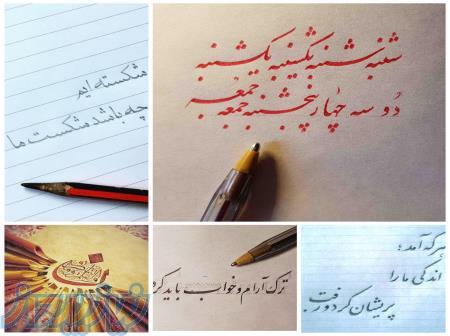 شنبه شنبه یکشنبه یکشنبه
جمعه
دو سه چهار پنجشنبه جمعه
شکسته ایم
چه باشد شکست ما
هر که آمد؛
اندکی ما را
پریشان کرد و رفت
ترک آرام و خواب باید کرد